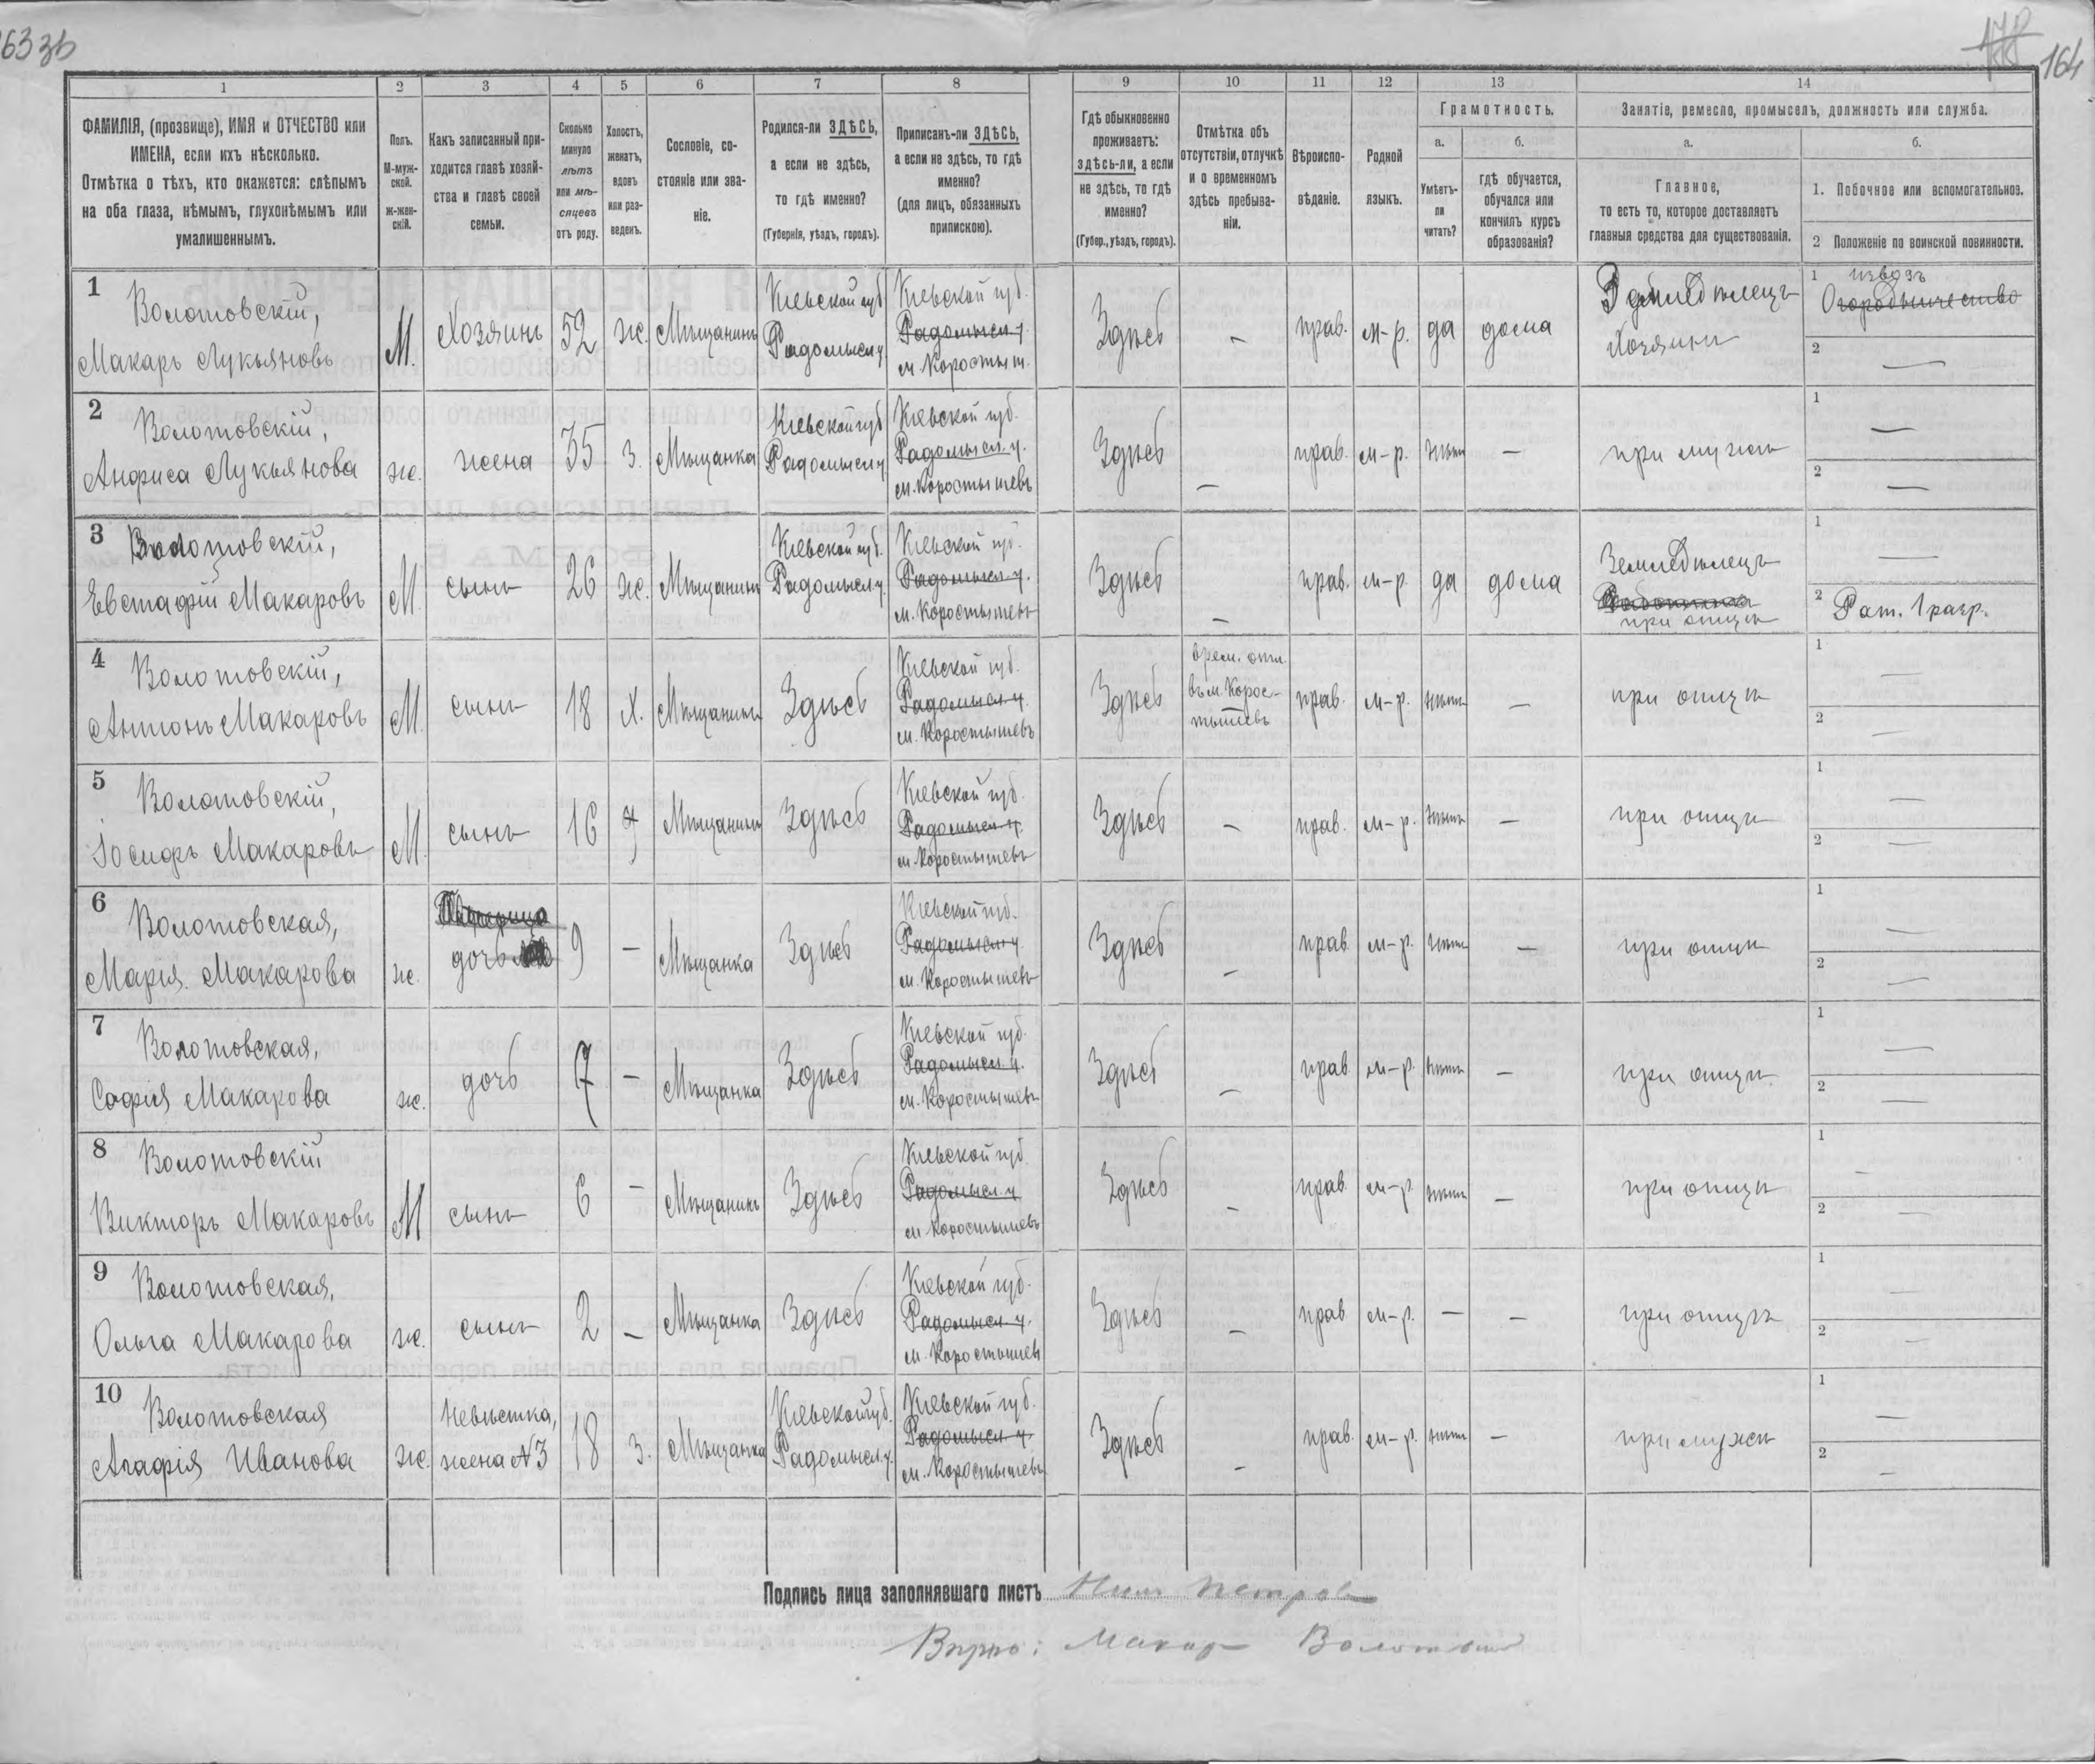 163 зв
178
164
1
2
3
4
5
6
7
8
9
10
11
12
13
14
ФАМИЛІЯ, (прозвище), ИМЯ и ОТЧЕСТВО или
ИМЕНА, если ихъ нѣсколько.
Отмѣтка о тѣхъ, кто окажется: слѣпымъ
на оба глаза, нѣмымъ, глухонѣмымъ или
умалишеннымъ.
Полъ.
М-муж-
ской.
ж-жен-
скій.
Какъ записанный при-
ходится главѣ хозяй-
ства и главѣ своей
семьи.
Сколько
минуло
лѣтъ
или мѣ-
сяцевъ
отъ роду.
Холостъ,
женатъ,
вдовъ
или раз-
веденъ.
Сословіе, со-
стояніе или зва-
ніе.
Родился-ли ЗДѢСЬ,
а если не здѣсь,
то гдѣ именно?
(Губернія, уѣздъ, городъ).
Приписанъ-ли ЗДѢСЬ,
а если не здѣсь, то гдѣ
именно?
(для лицъ, обязанныхъ
припискою).
Гдѣ обыкновенно
проживаетъ:
здѣсь-ли, а если
не здѣсь, то гдѣ
именно?
(Губер., уѣздъ, городъ).
Отмѣтка объ
отсутствіи, отлучкѣ
и о временномъ
здѣсь пребыва-
ніи.
Вѣроиспо-
вѣданіе.
Родной
языкъ.
Грамотность.
а.
Умѣетъ-
ли
читать?
б.
гдѣ обучается,
обучался или
кончилъ курсъ
образованія?
Занятіе, ремесло, промыселъ, должность или служба.
а.
Главное,
то есть то, которое доставляетъ
главныя средства для существованія.
б.
1. Побочное или вспомогательное.
2 Положеніе по воинской повинности.
1
Волотовскій,
Макаръ Лукьяновъ
М.
Хозяинъ
52
ж.
Мѣщанинъ
Кіевской губ
Радомысл у
Кіевской губ.
Радомысл у.
м. Коростыш.
Здѣсь
–
прав.
м-р.
да
дома
Земледѣлецъ
Хозяинъ
1 извозъ
Огородничество
2 —
2
Волотовскій,
Анфиса Лукьянова
ж.
жена
35
З.
Мѣщанка
Кіевской губ
Радомысл у
Кіевской губ.
Радомысл. у.
м. Коростышевъ
Здѣсь
–
прав.
м-р.
нѣтъ
–
при мужѣ
1 —
2 —
3
Волотовскій,
Евстафій Макаровъ
М.
сынъ
26
ж.
Мѣщанинъ
Кіевской губ.
Радомысл у.
Кіевской губ.
Радомысл у.
м. Коростышевъ
Здѣсь
–
прав.
м-р
да
дома
Земледѣлецъ
при отцѣ
1 —
2 Рат. 1 разр.
4
Волотовскій,
Антонъ Макаровъ
М.
сынъ
18
Х.
Мѣщанинъ
Здѣсь
Кіевской губ.
Радомысл у.
м. Коростышевъ
Здѣсь
врем. отл.
въ м. Корос-
тышевъ
прав.
м-р.
нѣтъ
–
при отцѣ
1 —
2 —
5
Волотовскій,
Іосифъ Макаровъ
М.
сынъ
16
Мѣщанинъ
Здѣсь
Кіевской губ.
Радомысл у.
м. Коростышевъ
Здѣсь
–
прав.
м-р.
нѣтъ
–
при отцѣ
1 —
2 —
6
Волотовская,
Марія Макарова
ж.
дочь
9
–
Мѣщанка
Здѣсь
Кіевской губ.
Радомысл у
м. Коростышевъ
Здѣсь
–
прав.
м-р.
нѣтъ
–
при отцѣ
1 —
2 —
7
Волотовская,
Софія Макарова
ж.
дочь
7
–
Мѣщанка
Здѣсь
Кіевской губ.
Радомысл у.
м. Коростышевъ
Здѣсь
–
прав.
м-р.
нѣтъ
–
при отцѣ
1 —
2 —
8
Волотовскій
Викторъ Макаровъ
М
сынъ
6
–
Мѣщанинъ
Здѣсь
Кіевской губ.
Радомысл у
м. Коростышевъ
Здѣсь
–
прав.
м-р.
нѣтъ
–
при отцѣ
1 —
2 —
9
Волотовская,
Ольга Макарова
ж.
сынъ
2
–
Мѣщанка
Здѣсь
Кіевской губ.
Радомысл у.
м. Коростышев
Здѣсь
–
прав
м-р.
–
–
при отцѣ
1 —
2 —
10
Волотовская
Агафія Иванова
ж.
Невѣстка,
жена № 3
18
З.
Мѣщанка
Кіевской губ.
Радомысл. у.
Кіевской губ.
Радомысл у.
м. Коростышевъ
Здѣсь
–
прав.
м-р.
нѣтъ
–
при мужѣ
1 —
2 —
Подпись лица заполнявшаго листъ Нилъ Петров
Вѣрно: Макар Волотовский